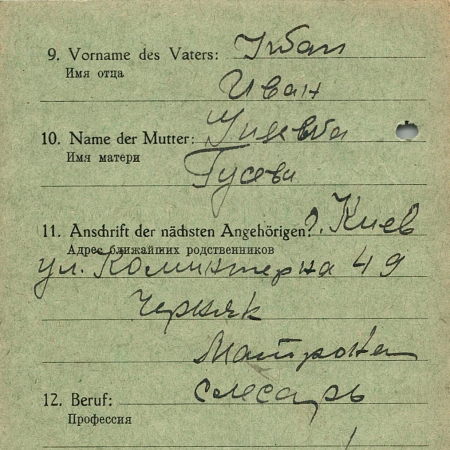 9. Vorname des Vaters:
Имя отца
Иван
10. Name der Mutter:
Имя матери
11. Anschrift der nächsten Angehörigen: г. Киев
Адрес ближайших родственников
ул. Коминтерна 49
Черняк
12. Beruf: слесарь
Профессия